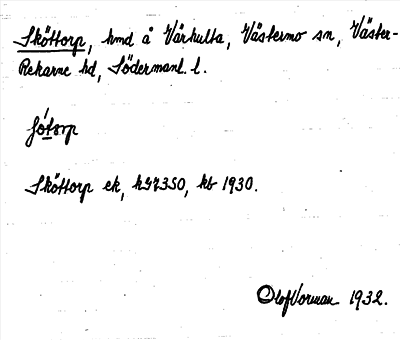 Sköttorp, hmd å Vårhulta, Västermo sn, Väster-
Rekarne hd, Södermanl. l.
Sköttorp ek, kb 1930.
Olof Vorman 1932.